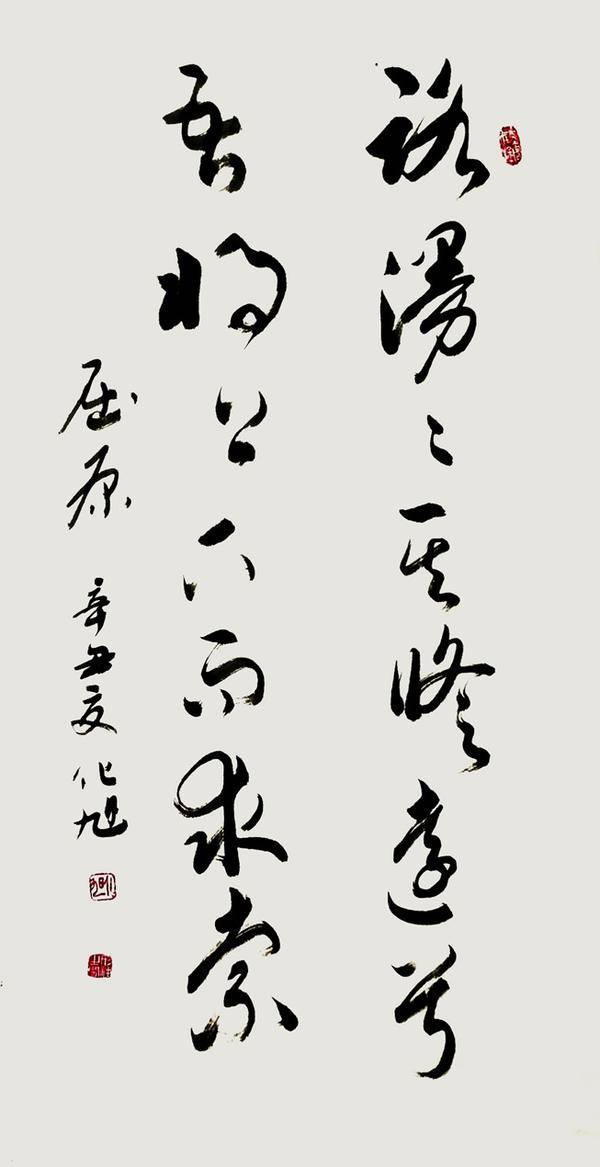 路漫〻其修遠兮
吾將上下而求索
屈原 辛丑夏 化旭